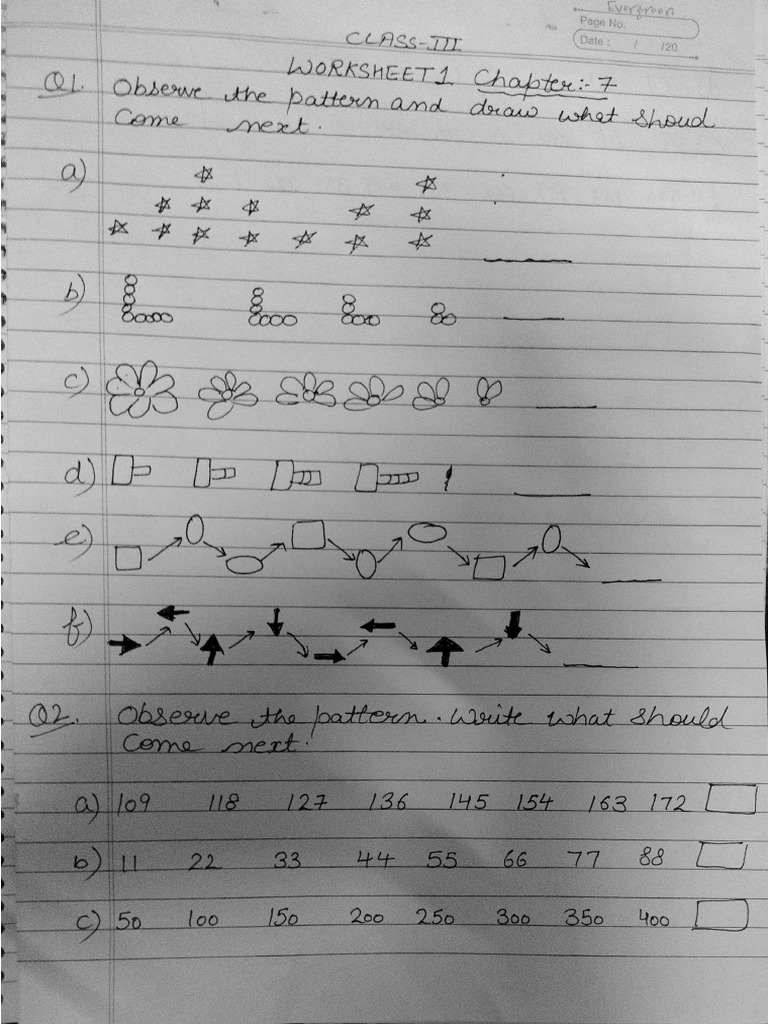 Evergreen
Page No.
Date : / /20
CLASS-III
WORKSHEET1 Chapter:- 7
Q1. Observe the pattern and draw what shoud
Come next.
a)
b)
c)
d)
e)
f)
Q2. Observe the pattern. Write what should
Come next.
a) 109 118 127 136 145 154 163 172
b) 11 22 33 44 55 66 77 88
c) 50 100 150 200 250 300 350 400